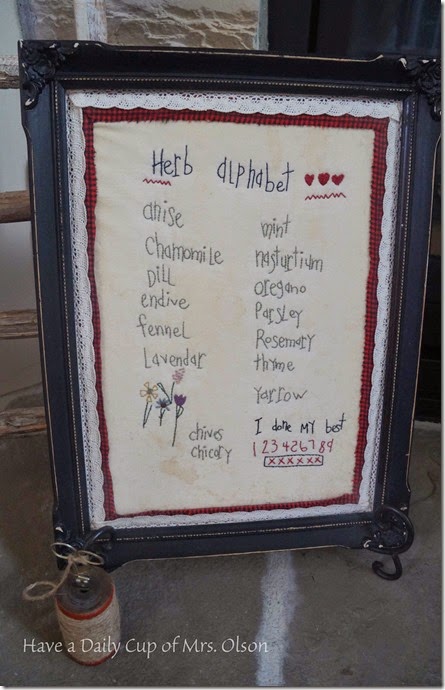 Herb alphabet
anise
Chamomile
Dill
endive
fennel
Lavendar
mint
nasturtium
oregano
Parsley
Rosemary
thyme
yarrow
chives
chicory
I done My best
123426789
xxxxxx
Have a Daily Cup of Mrs. Olson